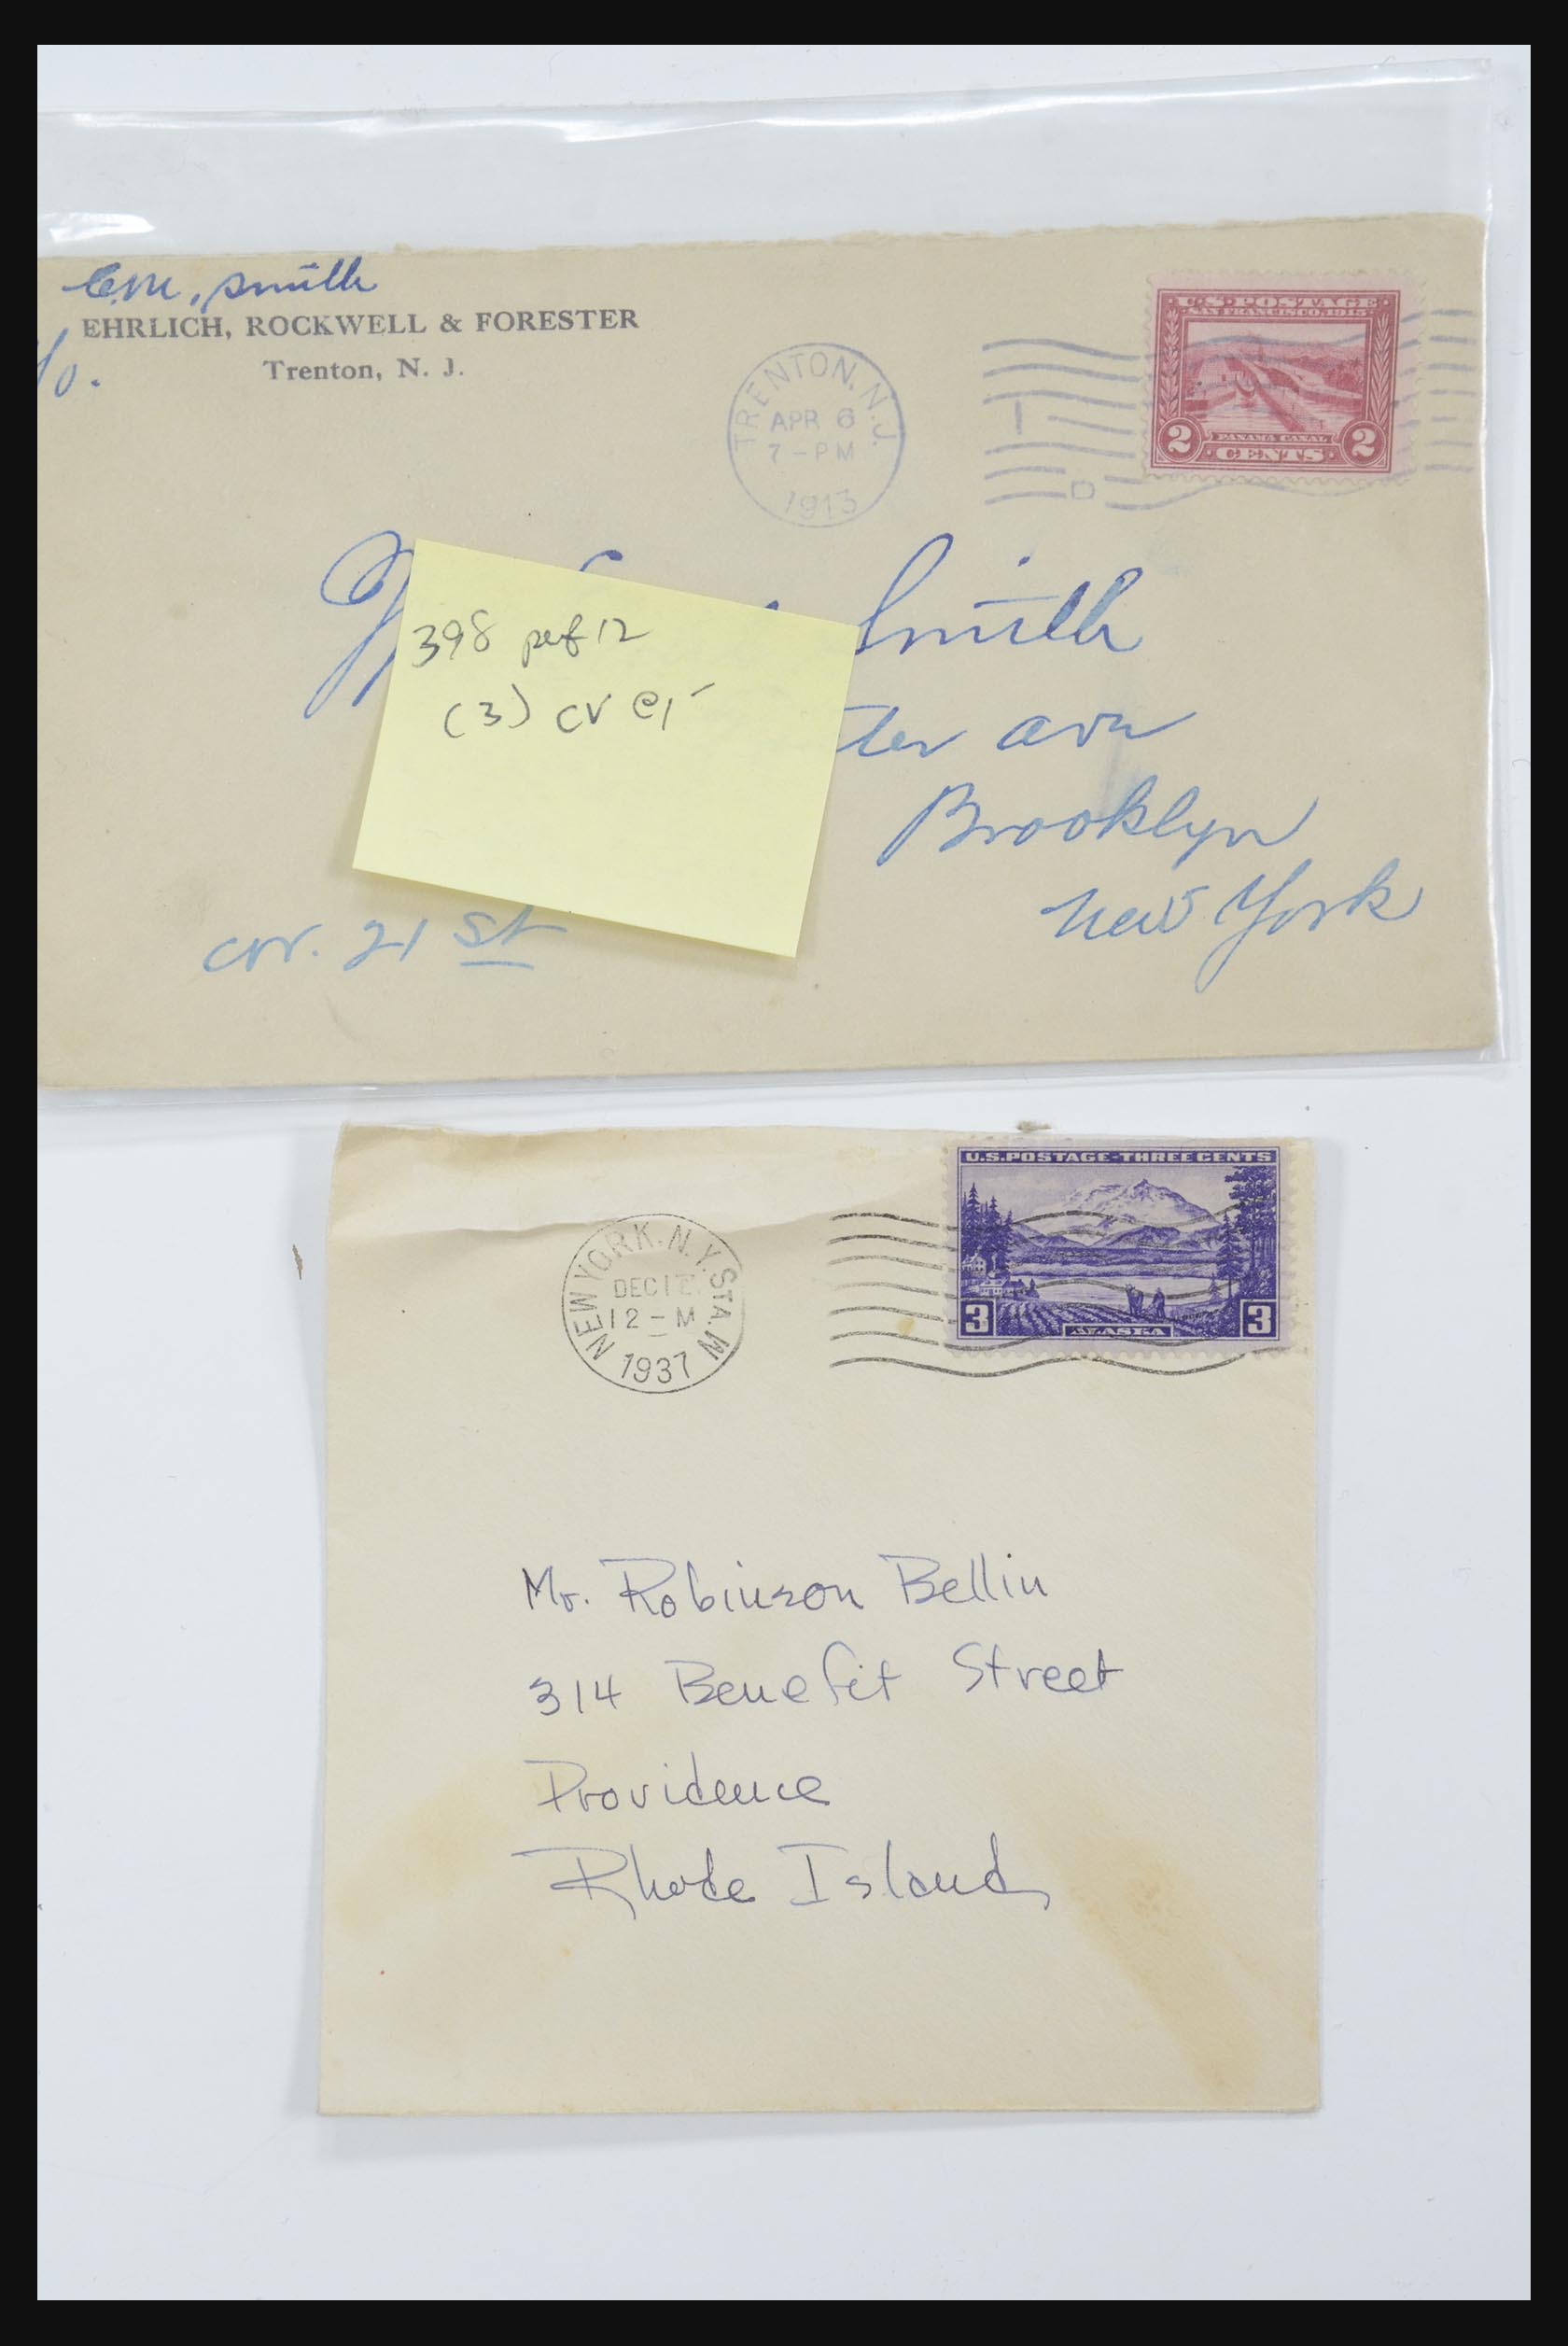 C.M. Smith
EHRLICH, ROCKWELL & FORESTER
Trenton, N. J.
TRENTON, N.J.
APR 6
7-PM
1913
U·S·POSTAGE
SAN FRANCISCO, 1915
2 PANAMA CANAL 2
CENTS
Smith
398 perf 12
(3) CV @1-
ave
Brooklyn
New York
cor. 21 st
U.S. POSTAGE-THREE CENTS
3 ALASKA 3
NEW YORK, N.Y. STA. W
DEC 1
12-M
1937
Mr. Robinson Bellin
314 Benefit Street
Providence
Rhode Island